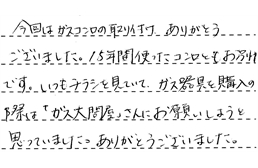 今回はガスコンロの取り付け ありがとう
ございました。15年間使ったコンロともお別れ
です。いつもチラシを見ていて、ガス器具を購入の
際は「ガス大問屋」さんにお願いしようと
思っていました。ありがとうございました。